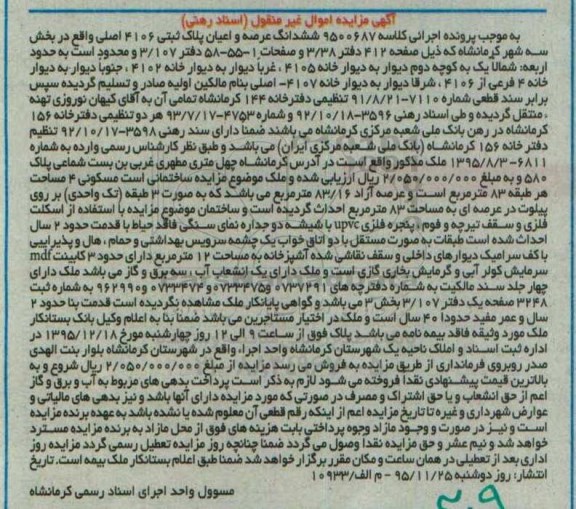 آگهی مزایده اموال غیر منقول (اسناد رهنی)
به موجب پرونده اجرائی کلاسه ۹۵۰۰۶۸۷ ششدانگ عرصه و اعیان پلاک ثبتی ۴۱۰۶ اصلی واقع در بخش
سه شهر کرمانشاه که ذیل صفحه ۴۱۲ دفتر ۳/۳۸ و صفحات ۱-۵۵-۵۸ دفتر ۳/۱۰۷ و محدود است به حدود
اربعه: شمالا یک به کوچه دوم دیوار به دیوار خانه ۴۱۰۵ ، غربا دیوار به دیوار خانه ۴۱۰۲ ، جنوبا دیوار به دیوار
خانه ۴ فرعی از ۴۱۰۶ ، شرقا دیوار به دیوار خانه ۴۱۰۷- اصلی بنام مالکین اولیه صادر و تسلیم گردیده سپس
برابر سند قطعی شماره ۷۱۱۰-۹۱/۸/۲۱ تنظیمی دفترخانه ۱۴۴ کرمانشاه تمامی آن به آقای کیهان نوروزی تهنه
، منتقل گردیده و طی اسناد رهنی ۳۵۹۶-۹۲/۱۰/۱۸ و شماره ۴۷۵۳-۹۳/۷/۱۷ هر دو تنظیمی دفترخانه ۱۵۶
کرمانشاه در رهن بانک ملی شعبه مرکزی کرمانشاه می باشند ضمنا دارای سند رهنی ۳۵۹۸-۹۲/۱۰/۱۷ تنظیم
دفتر خانه ۱۵۶ کرمانشاه (بانک ملی شعبه مرکزی ایران) می باشد و طبق نظر کارشناس رسمی وارده به شماره
۶۸۱۱-۱۳۹۵/۸/۳ ملک مذکور واقع است در آدرس کرمانشاه چهل متری مطهری غربی بن بست شماعی پلاک
۵۸۰ و به مبلغ ۲/۰۵۰/۰۰۰/۰۰۰ ریال ارزیابی شده و ملک موضوع مزایده ساختمانی است مسکونی ۴ مساحت
هر طبقه ۸۳ مترمربع است و عرصه آزاد ۸۳/۱۶ مترمربع می باشد که به صورت ۳ طبقه (تک واحدی) بر روی
پیلوت در عرصه ای به مساحت ۸۳ مترمربع احداث گردیده است و ساختمان موضوع مزایده با استفاده از اسکلت
فلزی و سقف تیرچه و فوم ، پنجره فلزی upvc با شیشه دو جداره نمای سنگی فاقد حیاط با قدمت حدود ۲ سال
احداث شده است طبقات به صورت مستقل با دو اتاق خواب یک چشمه سرویس بهداشتی و حمام ، هال و پذیرایی
با کف سرامیک دیوارهای داخلی و سقف نقاشی شده آشپزخانه به مساحت ۱۲ مترمربع دارای حدود ۳ کابینت mdf
سرمایش کولر آبی و گرمایش بخاری گازی است و ملک دارای یک انشعاب آب سه برق و گاز می باشد ملک دارای
چهار جلد سند مالکیت به شماره دفترچه های ۰۷۳۷۲۹۱ و ۰۷۳۳۴۷۵ و ۰۷۳۳۴۷۴ و ۹۶۲۹۹۰ به شماره ثبت
۳۲۴۸ صفحه یک دفتر ۳/۱۰۷ بخش ۳ می باشد و گواهی پایانکار ملک مشاهده نگردیده است قدمت بنا حدود ۲
سال و عمر مفید حدودا ۴۰ سال است و ملک در اختیار مستاجرین می باشد ضمنا بنا به اعلام وکیل بانک بستانکار
ملک مورد وثیقه فاقد بیمه نامه می باشد پلاک فوق از ساعت ۹ الی ۱۲ روز چهارشنبه مورخ ۱۳۹۵/۱۲/۱۸ در
اداره ثبت اسناد و املاک ناحیه یک شهرستان کرمانشاه واحد اجرا، واقع در شهرستان کرمانشاه بلوار بنت الهدی
صدر روبروی فرمانداری از طریق مزایده به فروش می رسد مزایده از مبلغ ۲/۰۵۰/۰۰۰/۰۰۰ ریال شروع و به
بالاترین قیمت پیشنهادی نقدا فروخته می شود لازم به ذکر است پرداخت بدهی های مربوط به آب و برق و گاز
اعم از حق انشعاب و یا حق اشتراک و مصرف در صورتی که مورد مزایده دارای آنها باشد و نیز بدهی های مالیاتی و
عوارض شهرداری و غیره تا تاریخ مزایده اعم از اینکه رقم قطعی آن معلوم شده یا نشده باشد به عهده برنده مزایده
است و نیز در صورت و جود مازاد وجوه پرداختی بابت هزینه های فوق از محل مازاد به برنده مزایده مسترد
خواهد شد و نیم عشر و حق مزایده نقدا وصول می گردد ضمنا چنانچه روز مزایده تعطیل رسمی گردد مزایده روز
اداری بعد از تعطیلی در همان ساعت و مکان مقرر برگزار خواهد شد ضمنا طبق اعلام بستانکار ملک بیمه است. تاریخ
انتشار: روز دوشنبه ۹۵/۱۱/۲۵ - م الف/۱۰۹۳۳
مسوول واحد اجرای اسناد رسمی کرمانشاه
۲۰۹